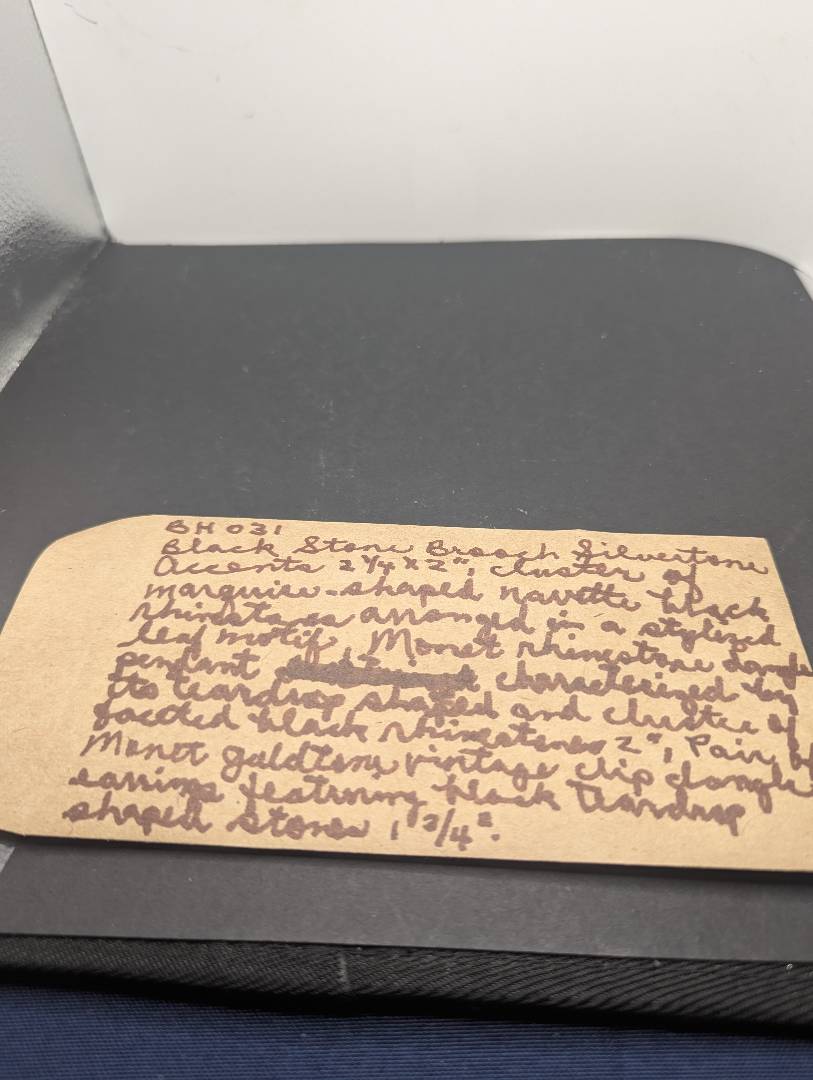 BH 031
Black Stone Brooch Silvertone
Accents 2 1/4 x 2", cluster of
marquise-shaped navette black
rhinestones arranged in a stylized
leaf motif, Monet rhinestone dangle
pendant characterized by
its teardrop shaped and cluster of
faceted black rhinestones 2", Pair of
Monet goldtone vintage clip dangle
earrings featuring black teardrop
shaped stones 1 3/4".